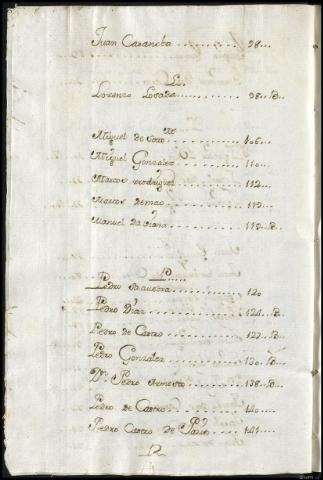 Juan Casanoba ........ 98...
L.
Lorenzo Losada ........ 98..B..
M
Miguel de Soto ........ 106...
Miguel Gonzalez ........ 110...
Marcos Rodriguez ........ 112...
Marcos ........ 113...
Manuel ........ 118..B..
P
Pedro ........ 120
Pedro Diaz ........ 124..B..
Pedro de Castro ........ 127..B..
Pedro Gonzalez ........ 130..B..
Dn. Pedro Armesto ........ 138..B..
Pedro de Castro ........ 140....
Pedro Castro de ........ 141....